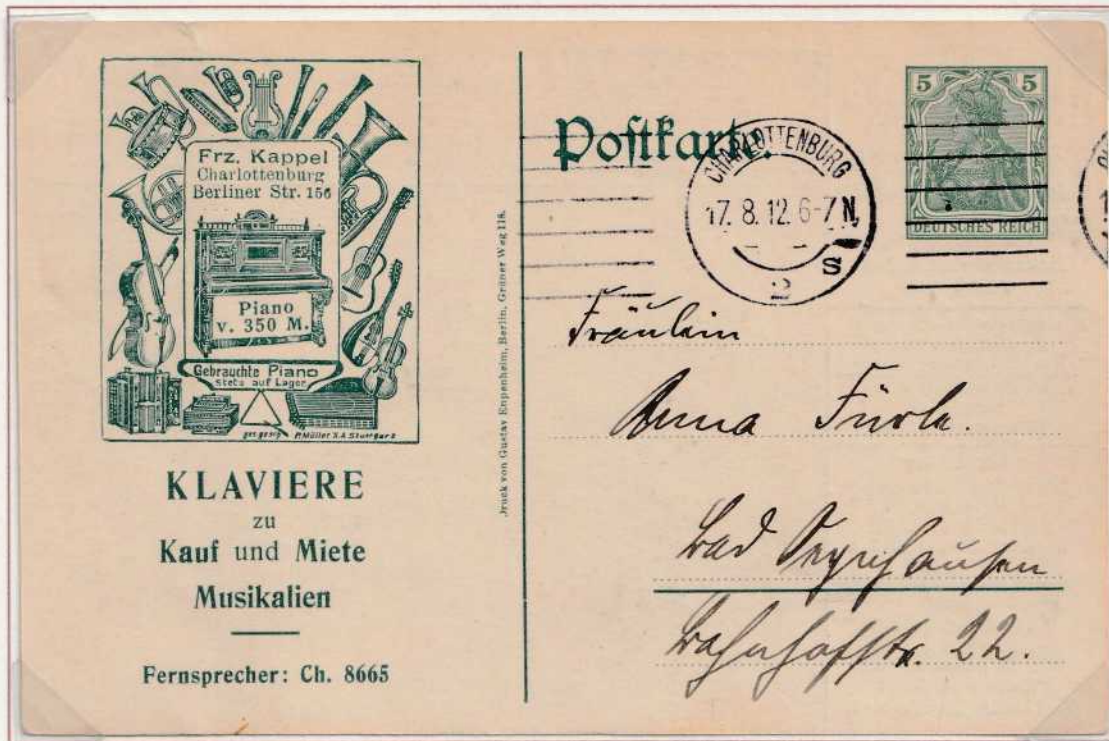 Frz. Kappel
Charlottenburg
Berliner Str. 156
Piano
v. 350 M.
Gebrauchte Piano
stets auf Lager
ges. gesch. P. Müller X.A. Stuttgart
KLAVIERE
zu
Kauf und Miete
Musikalien
Fernsprecher: Ch. 8665
Druck von Gustav Enpenheim, Berlin, Grüner Weg 118.
Postkarte.
CHARLOTTENBURG
17. 8. 12. 6-7 N.
S
2
5 5
DEUTSCHES REICH
Fräulein
Anna
Bad Oeynhausen
Bahnhofstr. 22.